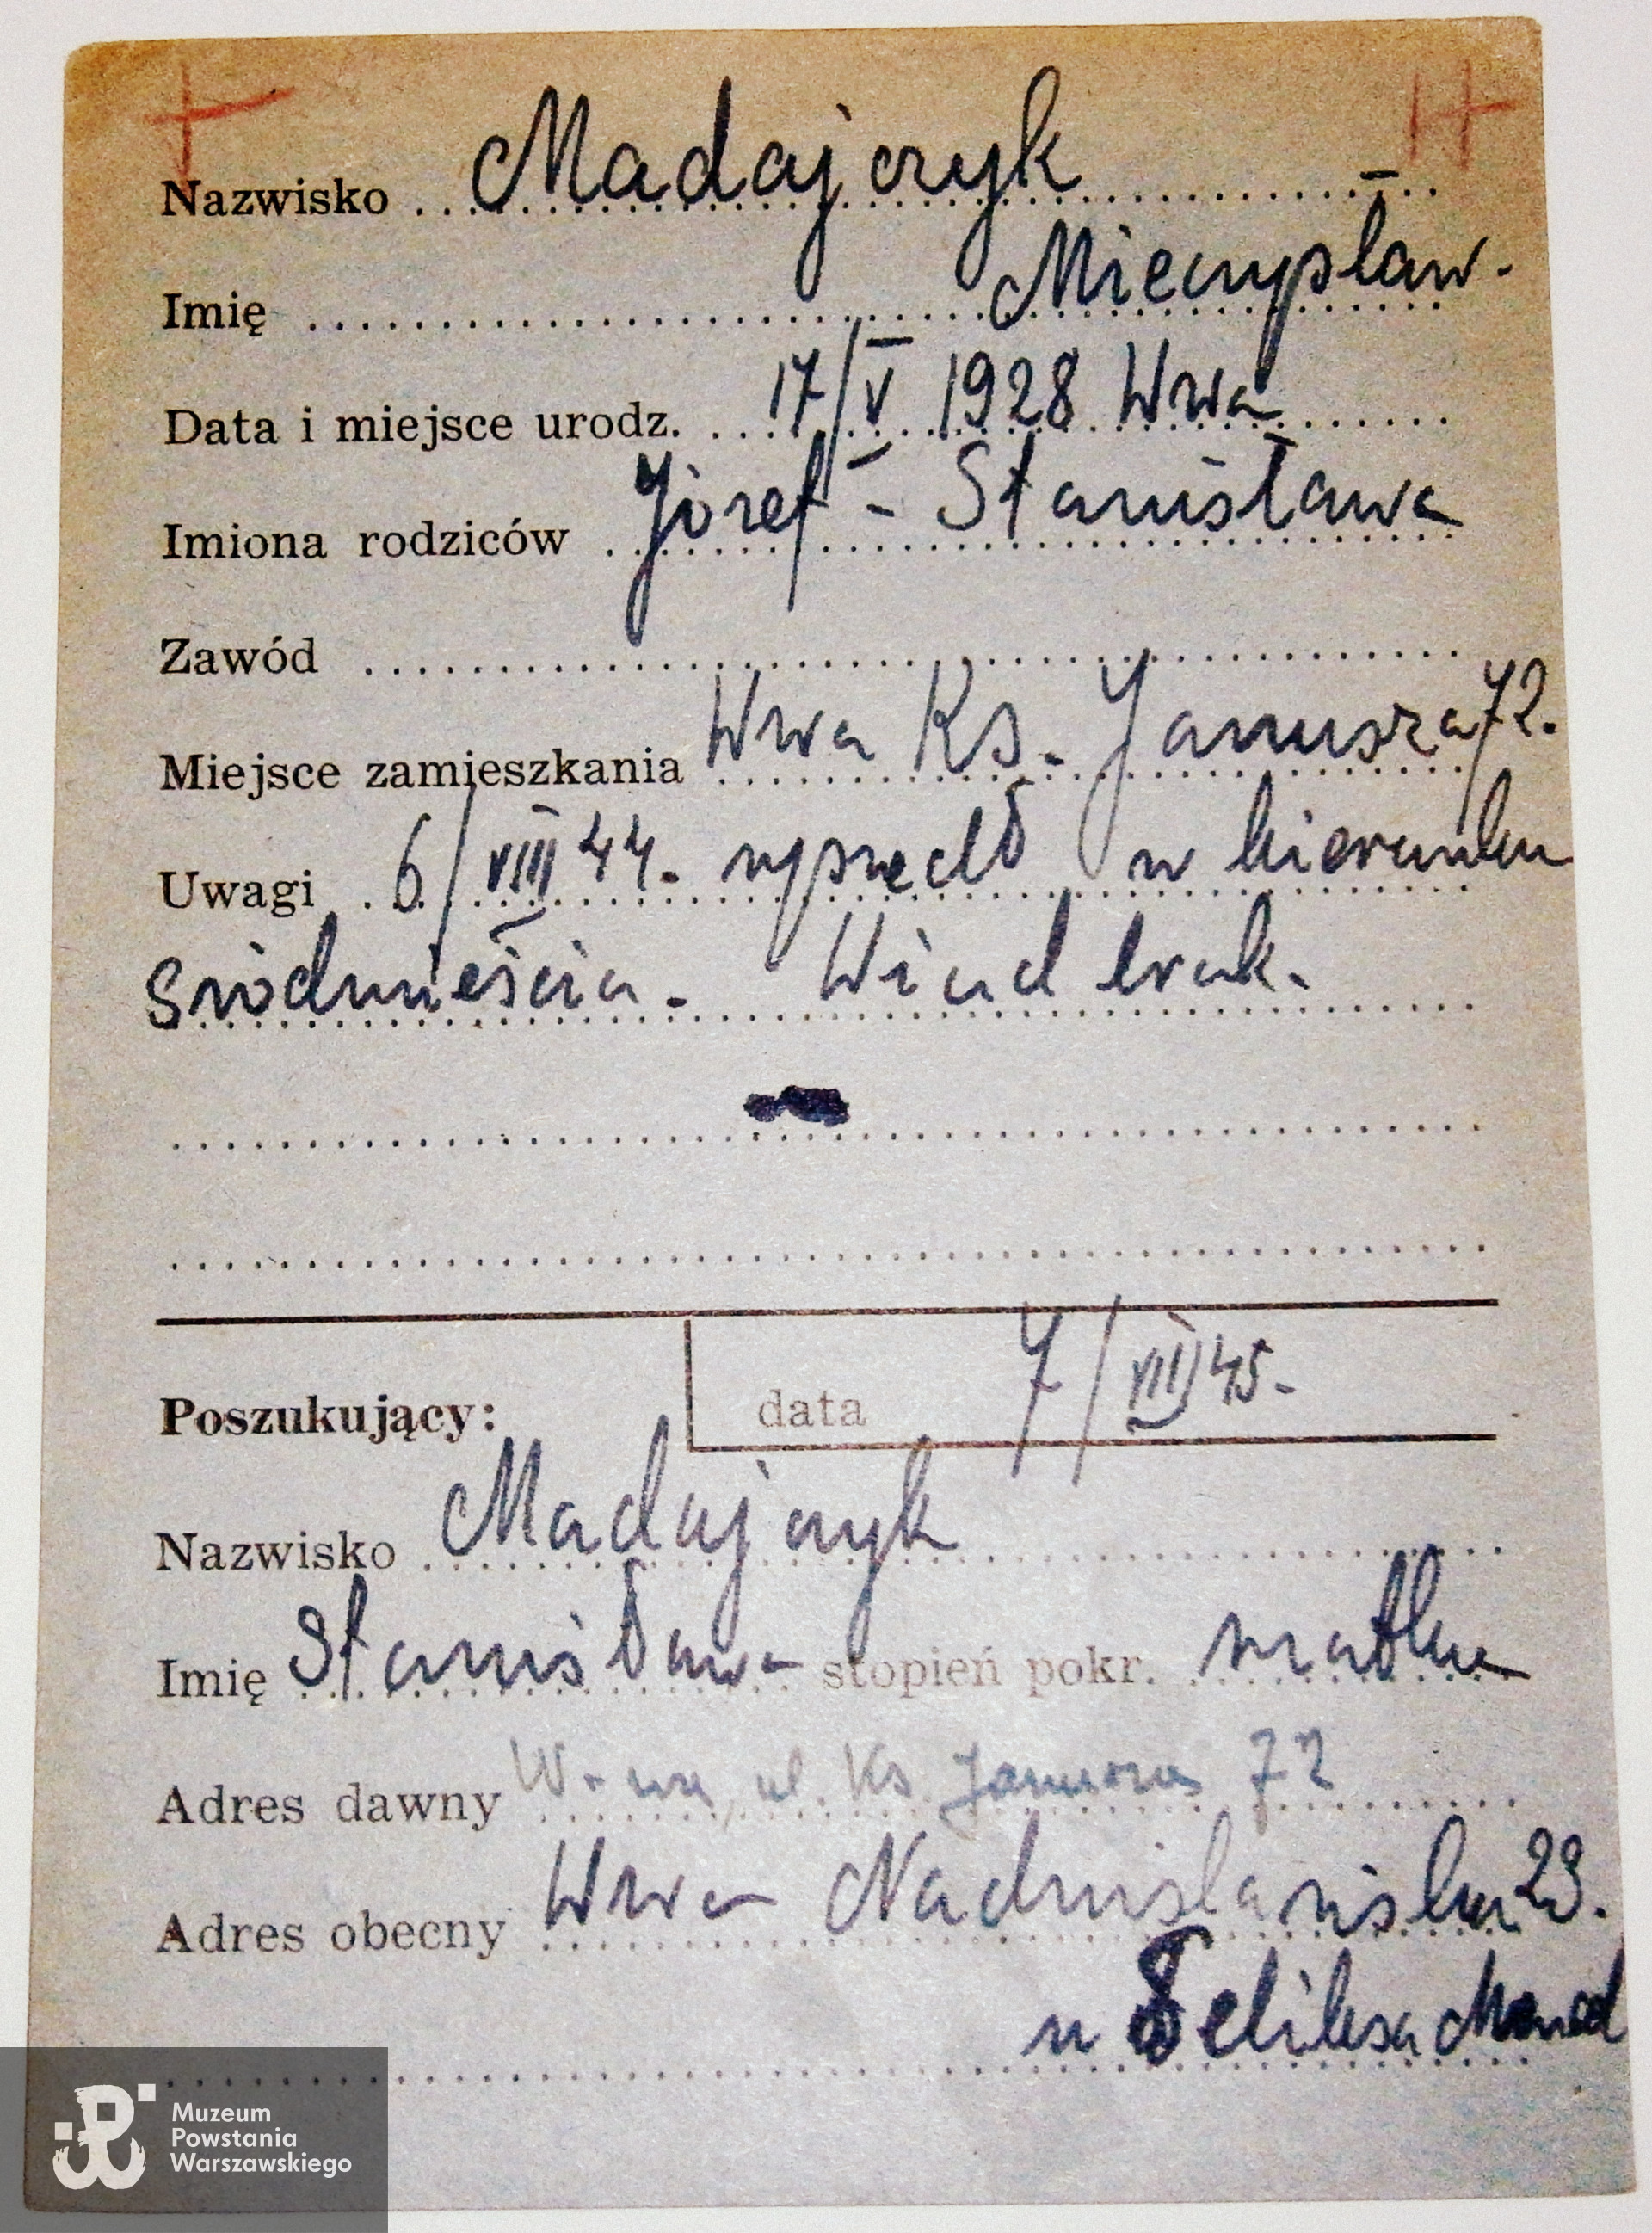 Nazwisko Madajczyk
Imię Mieczysław.
Data i miejsce urodz. 17/V 1928 Wwa
Imiona rodziców Józef - Stanisława
Zawód
Miejsce zamieszkania Wwa Ks. Janusza 72.
Uwagi 6/VIII 44. wyszedł w kierunku
Śródmieścia. Wiad brak.
Poszukujący: data 7/VIII 45.
Nazwisko Madajczyk
Imię Stanisława stopień pokr. matka
Adres dawny W-wa, ul. Ks. Janusza 72
Adres obecny Wwa Nadwiślańska 23.
u Feliksa
Muzeum
Powstania
Warszawskiego